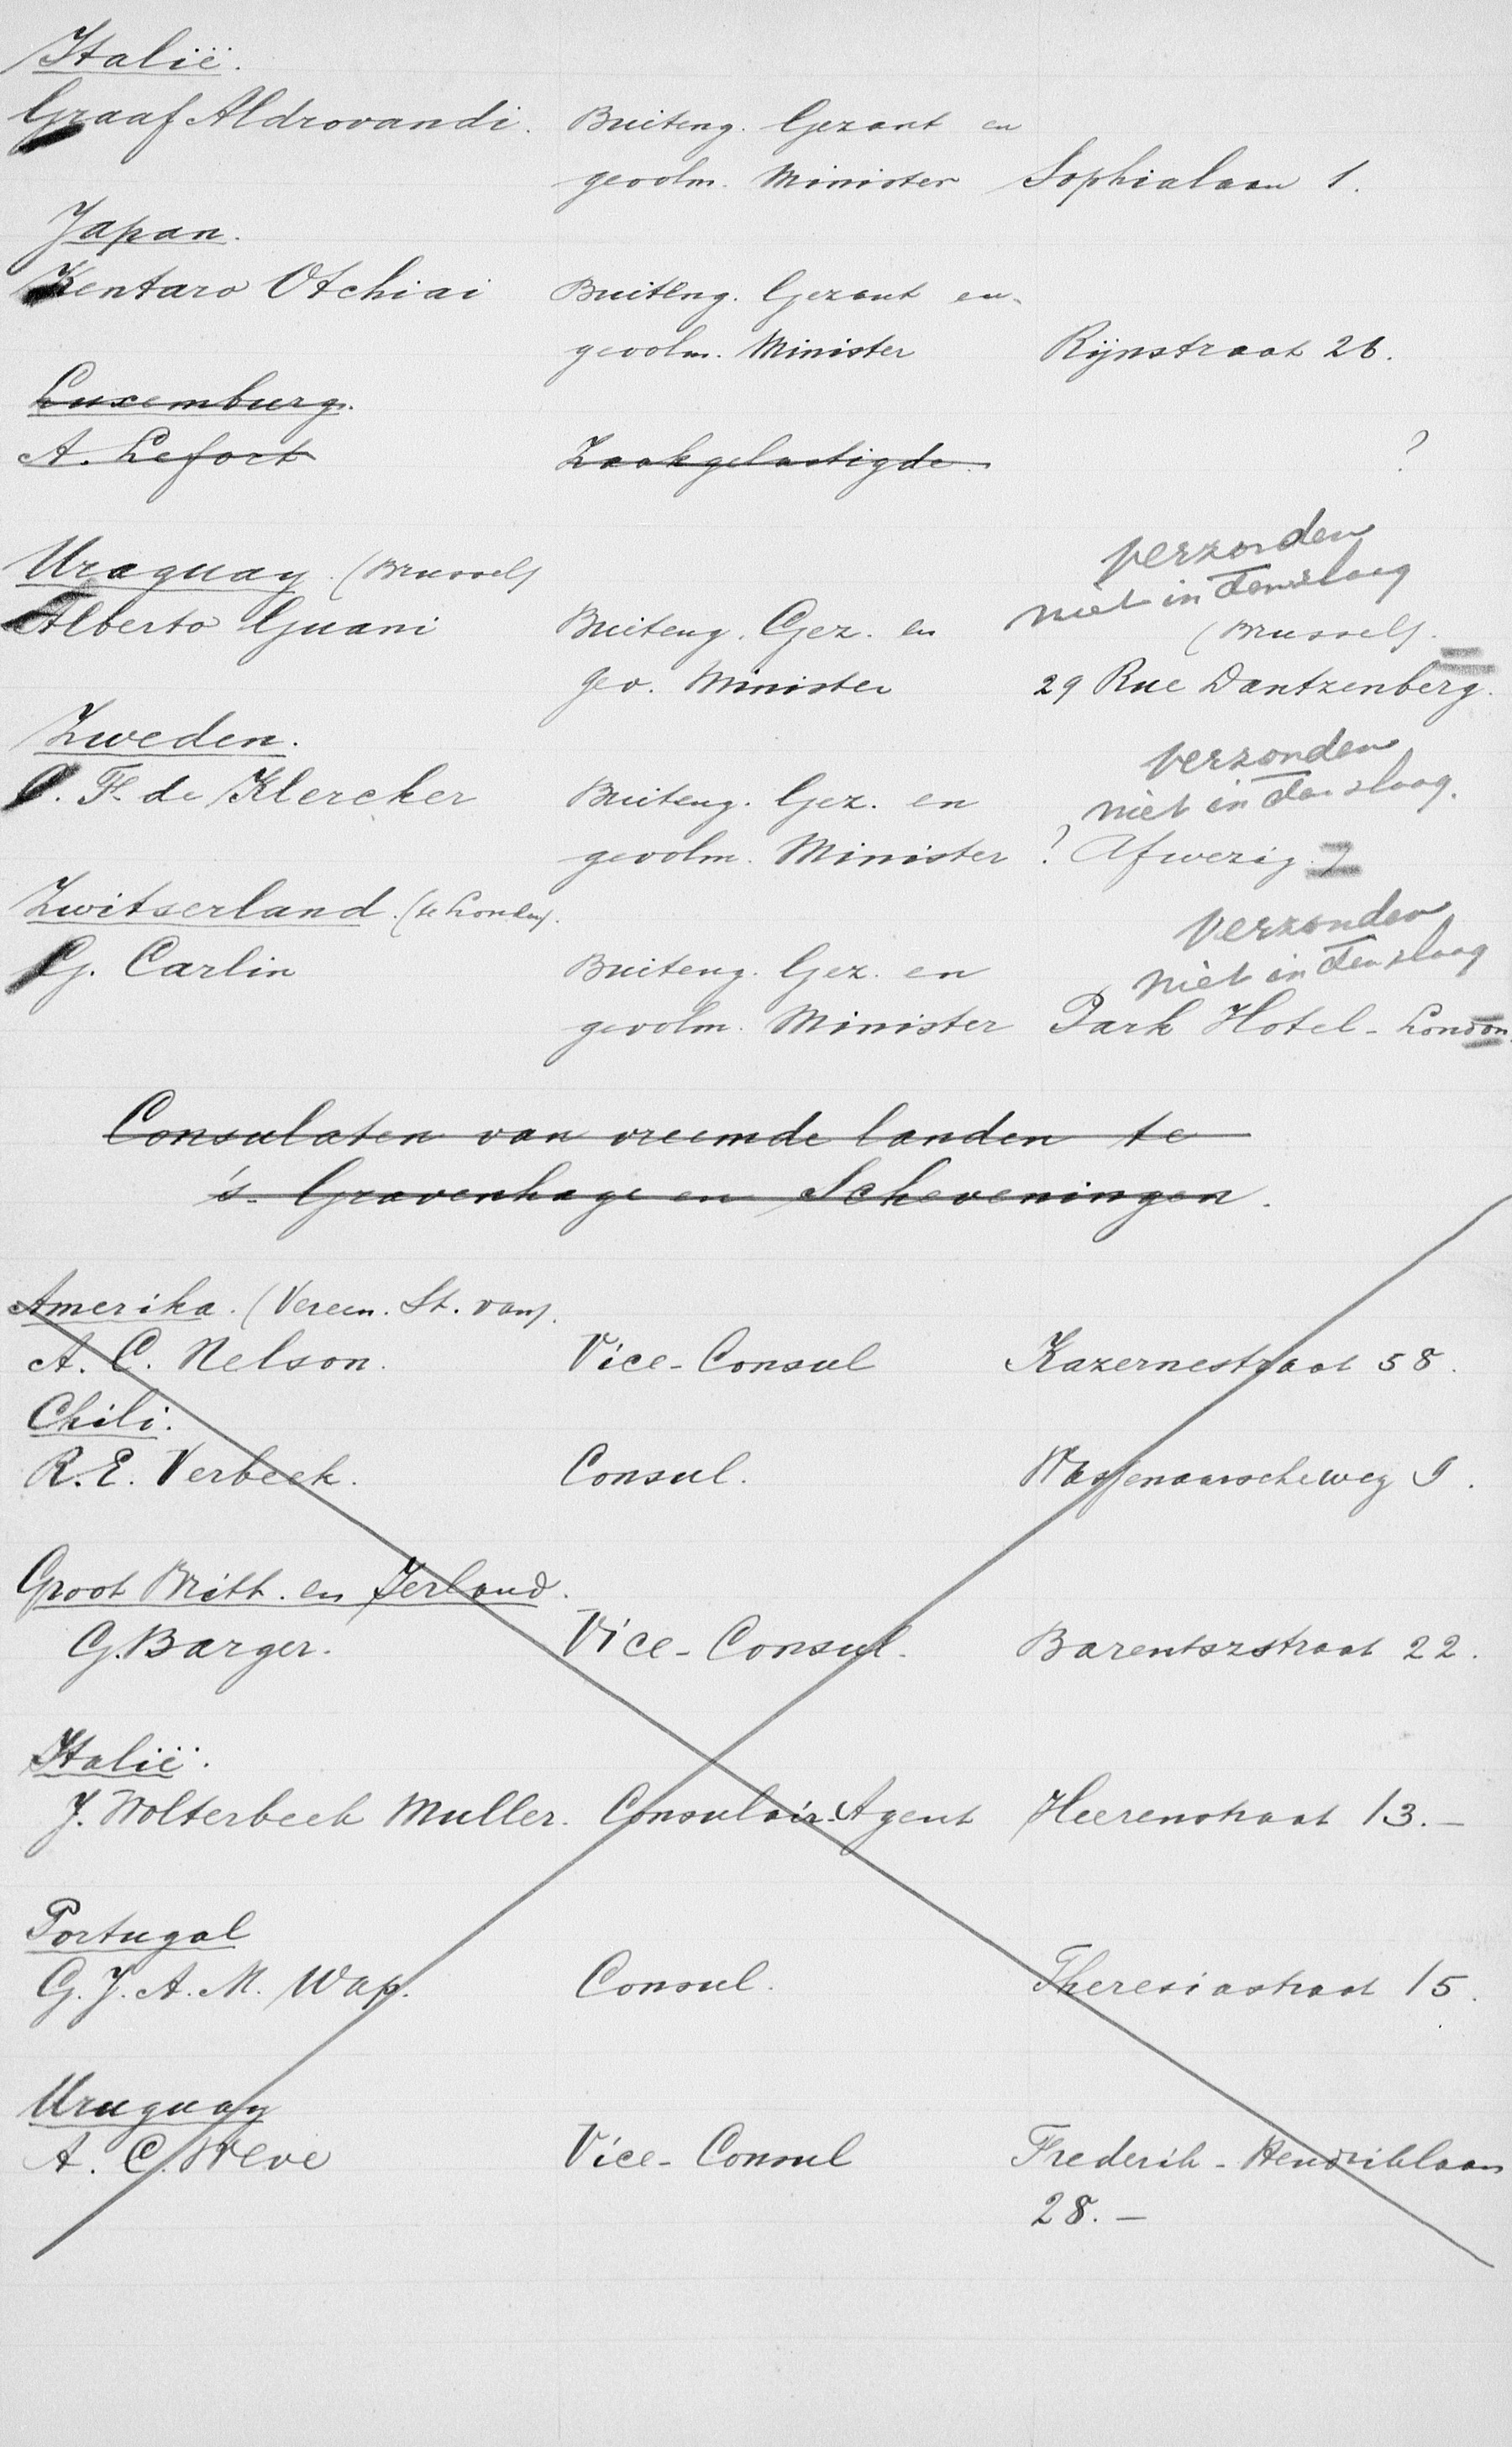 Italië.
Graaf Aldrovandi. Buiteng. Gezant en
gevolm. Minister Sophialaan 1.
Japan.
Kentaro Otchiai Buiteng. Gezant en
gevolm. Minister Rijnstraat 26.
Luxemburg.
A. Lefort Zaakgelastigde ?
verzonden
Uraguay. (Brussel) niet in den Haag
Alberto Guani Buiteng. Gez. en (Brussel).
gev. Minister 29 Rue Dantzenberg.
Zweden. verzonden
F. de Klercker Buiteng. Gez. en niet in den Haag.
gevolm. Minister ? Afwezig ?
Zwitserland. (te Londen). verzonden
G. Carlin Buiteng. Gez. en niet in den Haag
gevolm. Minister Park Hotel - London.
Consulaten van vreemde landen te
's Gravenhage en Scheveningen.
Amerika. (Vereen. St. van).
A. C. Nelson. Vice-Consul Kazernestraat 58.
Chili.
R. E. Verbeek. Consul. Wassenaarscheweg 9.
Groot Britt. en Ierland.
G. Barger. Vice-Consul. Barentszstraat 22.
Italië.
J. Wolterbeek Muller. Consulair. Agent Heerenstraat 13.-
Portugal
G. J. A. M. Wap. Consul. Theresiastraat 15.
Uruguay
A. C. Weve Vice-Consul Frederik-Hendriklaan
28.-